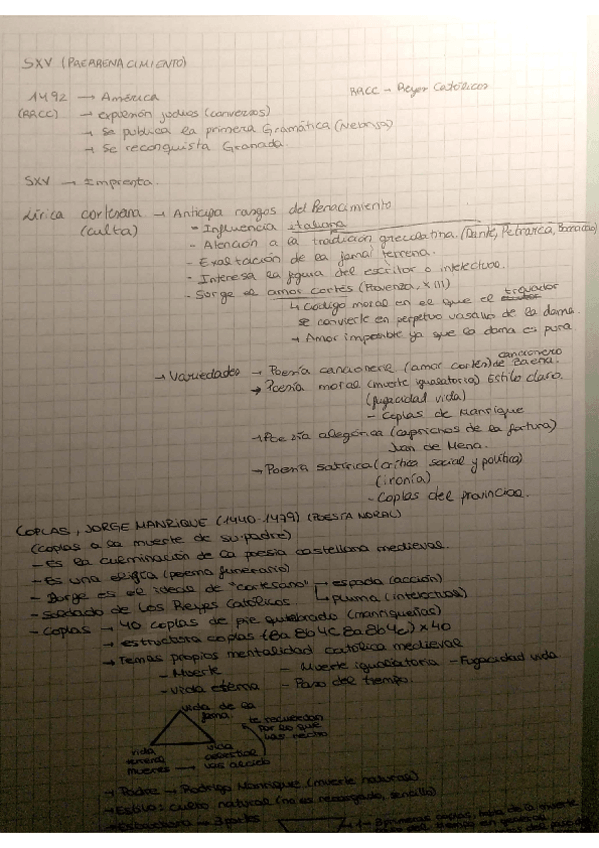 SXV (PRERRENACIMIENTO)
1492 → América
RRCC - Reyes Católicos
(RRCC) → expulsión judíos (conversos)
→ Se publica la primera Gramática (Nebrija)
→ Se reconquista Granada.
SXV → Imprenta.
Lírica cortesana → Anticipa rasgos del Renacimiento
(culta) - Influencia italiana
- Atención a la tradición grecolatina. (Dante, Petrarca, Boccaccio)
- Exaltación de la fama terrena.
- Interesa la figura del escritor o intelectual.
- Sorge el amor cortés (Provenza, XIII)
↳ Código moral en el que el trovador
se convierte en perpetuo vasallo de la dama.
→ Amor imposible ya que la dama es pura.
→ Variedades → Poesía cancioneril (amor cortés) cancionero de Baena.
→ Poesía moral (muerte igualatoria) Estilo claro.
(fugacidad vida)
- Coplas de Manrique
→ Poesía alegórica (caprichos de la fortuna)
Juan de Mena.
→ Poesía satírica (crítica social y política)
(ironía)
- Coplas del provincial.
COPLAS, JORGE MANRIQUE (1440-1479) (POESÍA MORAL)
(coplas a la muerte de su padre)
- Es la culminación de la poesía castellana medieval.
- Es una elegía (poema funerario)
- Jorge es el ideal de "cortesano" → espada (acción)
- Soldado de los Reyes Católicos ↳ pluma (intelectual)
- Coplas → 40 coplas de pie quebrado (manriqueñas)
→ estructura coplas (8a 8b 4c 8a 8b 4c) x 40
→ Temas propios mentalidad católica medieval
- Muerte - Muerte igualatoria - Fugacidad vida
- Vida eterna - Paso del tiempo.
vida de la
fama. te recuerdan
por lo que
has hecho
vida vida
terrena celestial
mueres → vas al cielo
→ Padre → Rodrigo Manrique (muerte natural)
→ Estilo: culto natural (no es recargado, sencillo)
→ Estructura → 3 partes